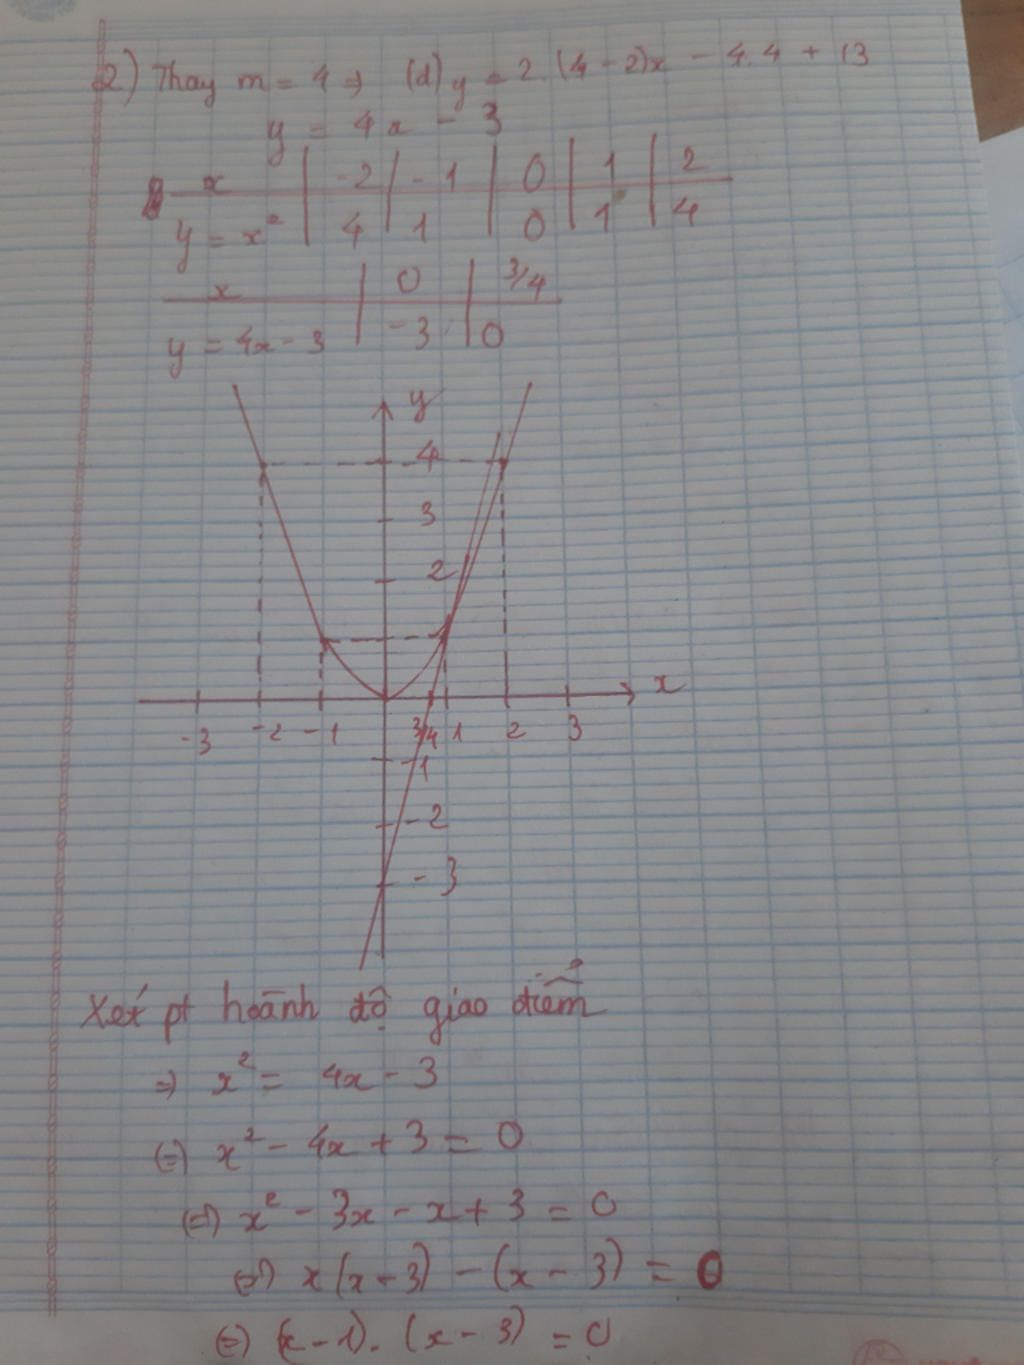 2) Thay m = 4 => (d) y = 2.(4 - 2)x - 4.4 + 13
y = 4x - 3
x | -2 | -1 | 0 | 1 | 2
y = x² | 4 | 1 | 0 | 1 | 4
x | 0 | 3/4
y = 4x - 3 | -3 | 0
y
4
3
2
x
-3 -2 -1 3/4 1 2 3
-1
-2
-3
Xét pt hoành độ giao điểm
=> x² = 4x - 3
(=) x² - 4x + 3 = 0
(=) x² - 3x - x + 3 = 0
(=) x(x - 3) - (x - 3) = 0
(=) (x - 1). (x - 3) = 0